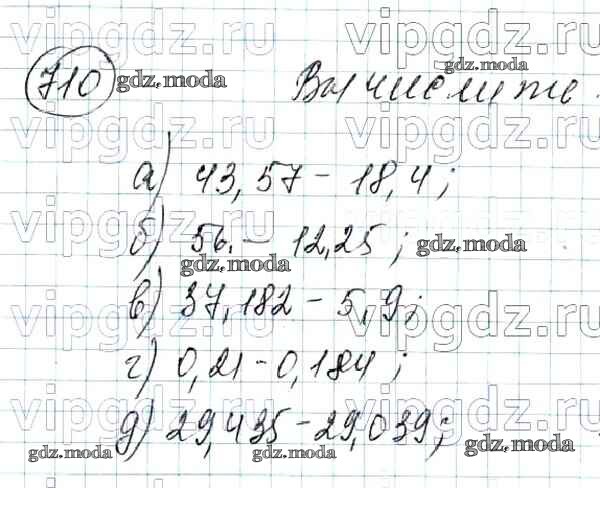 vipgdz.ru vipgdz.ru
710 gdz.moda Вычислите gdz.moda
vipgdz.ru vipgdz.ru
а) 43,57 - 18,4;
vipgdz.ru vipgdz.ru
б) 56 - 12,25; gdz.moda
gdz.moda
в) 37,182 - 5,9;
vipgdz.ru vipgdz.ru
г) 0,21 - 0,184;
vipgdz.ru vipgdz.ru
д) 29,435 - 29,039;
gdz.moda gdz.moda gdz.moda